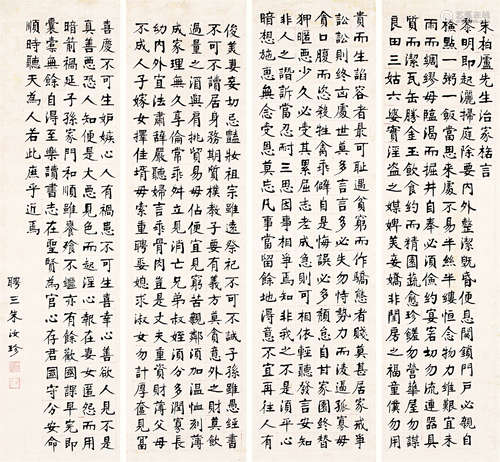 朱柏廬先生治家格言
黎明即起灑掃庭除要內外整潔既昏便息關鎖門戶必親自
檢點一粥一飯當思來處不易半絲半縷恒念物力維艱宜未
雨而綢繆毋臨渴而掘井自奉必須儉約宴客切勿流連器具
質而潔瓦缶勝金玉飲食約而精園蔬愈珍饈勿營華屋勿謀
良田三姑六婆實淫盜之媒婢美妾嬌非閨房之福童僕勿用
貴而生諂容者最可恥遇貧窮而作驕態者賤莫甚居家戒爭
訟訟則終凶處世莫多言言多必失勿恃勢力而凌逼孤寡毋
貪口腹而恣殺牲禽乖僻自是悔誤必多頹惰自甘家園終替
狎暱惡少久必受其累屈志老成急則可相依輕聽發言安知
非人之譖訴當忍耐三思因事相爭焉知非我之不是須平心
暗想施惠無念受恩莫忘凡事當留餘地得意不宜再往人有
俊美妻妾切忌豔妝祖宗雖遠祭祀不可不誠子孫雖愚經書
不可不讀居身務期質樸教子要有義方莫貪意外之財莫飲
過量之酒與肩挑貿易毋佔便宜見窮苦親鄰須加溫恤刻薄
成家理無久享倫常乖舛立見消亡兄弟叔姪須分多潤寡長
幼內外宜法肅辭嚴聽婦言乖骨肉豈是丈夫重資財薄父母
不成人子嫁女擇佳壻毋索重聘娶媳求淑女勿計厚奩見富
喜慶不可生妬嫉心人有禍患不可生喜幸心善欲人見不是
真善惡恐人知便是大惡見色而起淫心報在妻女匿怨而用
暗箭禍延子孫家門和順雖饔飧不繼亦有餘歡國課早完即
囊橐無餘自得至樂讀書志在聖賢為官心存君國守分安命
順時聽天為人若此庶乎近焉
聘三朱汝珍